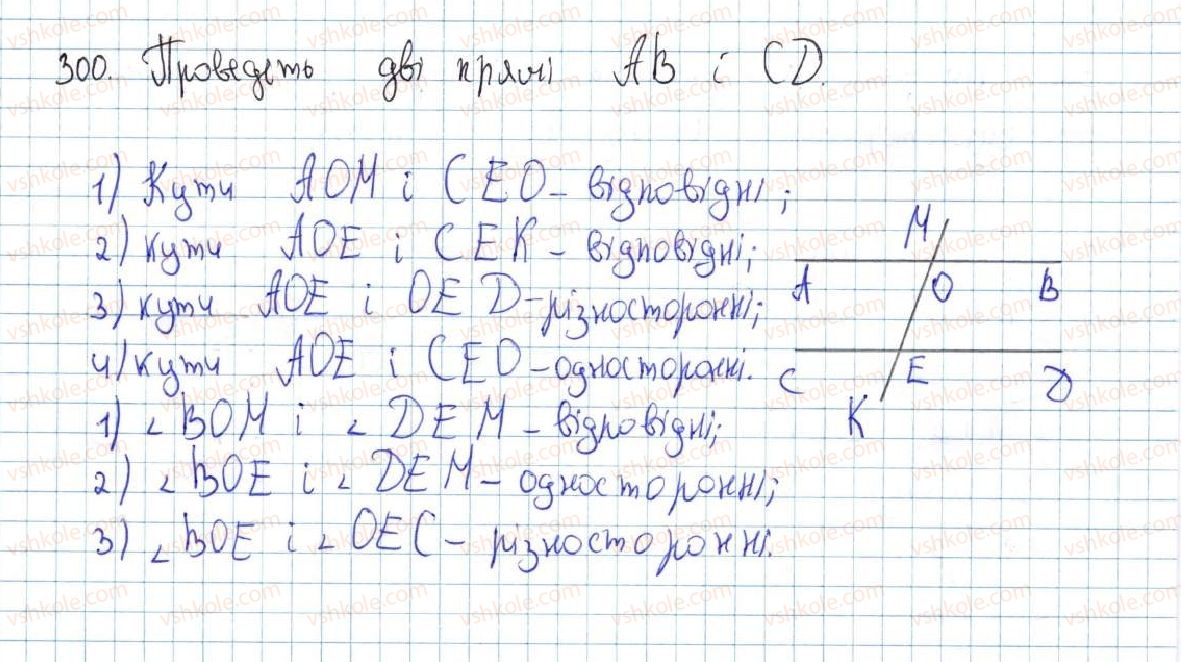 300. Проведеть дві прямі AB і CD.
1) Кути AOM і CEO - відповідні;
2) кути AOE і CEK - відповідні;
3) кути AOE і OED - різносторонні;
4) кути AOE і CEO - односторонні.
1) ∠BOM і ∠DEM - відповідні;
2) ∠BOE і ∠DEM - односторонні;
3) ∠BOE і ∠OEC - різносторонні.
M
A O B
C E D
K
vshkole.com